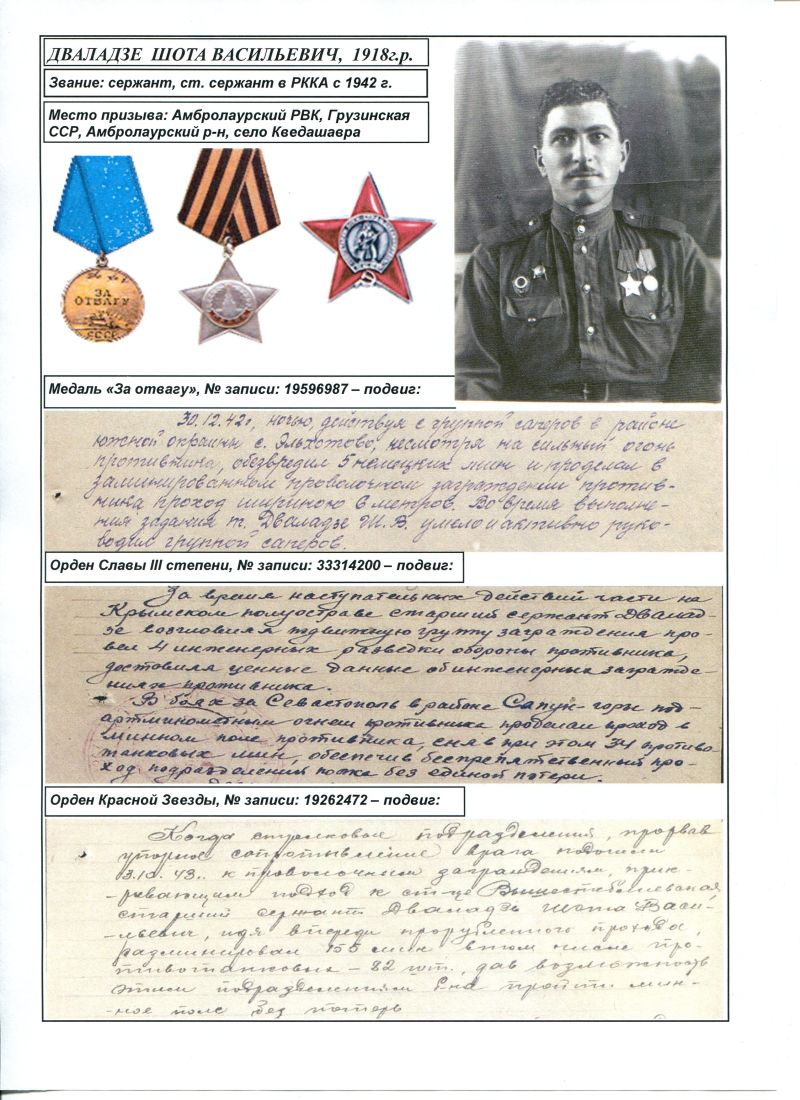 ДВАЛАДЗЕ ШОТА ВАСИЛЬЕВИЧ, 1918г.р.
Звание: сержант, ст. сержант в РККА с 1942 г.
Место призыва: Амбролаурский РВК, Грузинская
ССР, Амбролаурский р-н, село Кведашавра
ЗА
ОТВАГУ
СССР
Медаль «За отвагу», № записи: 19596987 – подвиг:
30.12.42г, ночью, действуя с группой саперов в районе
южной окраины с. Эльхотово, несмотря на сильный огонь
противника, обезвредил 5 немецких мин и проделал в
заминированном проволочном заграждении против-
ника проход шириною 6 метров. Во время выполне-
ния задания т. Дваладзе Ш.В. умело и активно руко-
водил группой саперов.
Орден Славы III степени, № записи: 33314200 – подвиг:
За время наступательных действий части на
Крымском полуострове старший сержант Двалад-
зе возглавляя подвижную группу заграждения про-
вел 4 инженерных разведки обороны противника,
доставляя ценные данные об инженерных загражде-
ниях противника.
В боях за Севастополь в районе Сапун-горы под
артминометным огнем противника проделал проход в
минном поле противника, сняв при этом 34 противо-
танковых мин, обеспечив беспрепятственный про-
ход подразделений полка без единой потери.
Орден Красной Звезды, № записи: 19262472 – подвиг:
Когда стрелковые подразделения, прорвав
упорное сопротивление врага подошли
3.10.43. к проволочным заграждениям, прик-
-рывающим подход к ст-це Вышестеблиевская
старший сержант Дваладзе Шота Васи-
-льевич, идя впереди прорубленного прохода,
разминировал 155 мин в том числе про-
тивотанковых – 82 шт., дав возможность
этим подразделениям пройти мин-
-ное поле без потерь